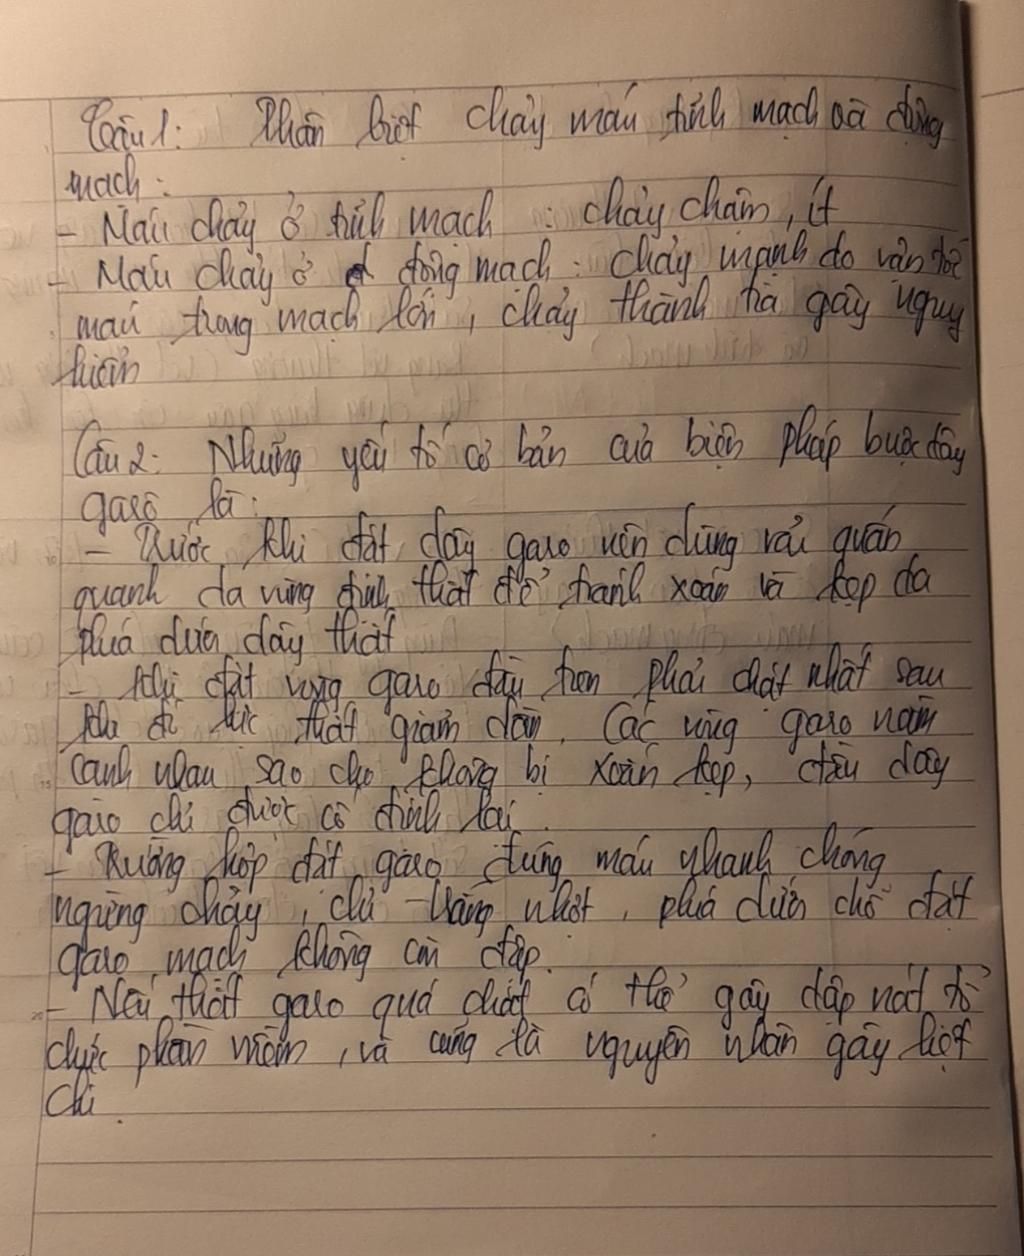 Câu 1: Phân biệt chảy máu tĩnh mạch và động
mạch:
- Máu chảy ở tĩnh mạch : chảy chậm, ít
- Máu chảy ở động mạch : chảy mạnh do vận tốc
máu trong mạch lớn, chảy thành tia gây nguy
hiểm
Câu 2: Những yếu tố cơ bản của biện pháp buộc dây
garo là:
- Trước khi đặt dây garo nên dùng vải quấn
quanh da vùng định thắt để tránh xoắn và kẹp da
phía dưới dây thắt
- Khi đặt vòng garo đầu tiên phải chặt nhất sau
khi đó lực thắt giảm dần. Các vòng garo nằm
cạnh nhau sao cho không bị xoắn kẹp, đầu dây
garo chỉ được cố định lại.
- Trường hợp đặt garo đúng máu nhanh chóng
ngừng chảy, chi trắng nhợt, phía dưới chỗ đặt
garo mạch không còn đập.
- Nếu thắt garo quá chặt có thể gây dập nát tổ
chức phần mềm, và cũng là nguyên nhân gây liệt
chi.